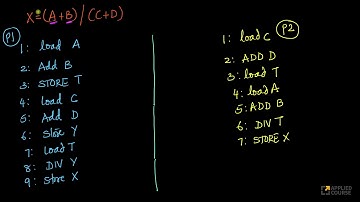 X=(A+B)/(C+D)
P1
1: load A
2: Add B
3: STORE T
4: Load C
5: Add D
6: Store Y
7: Load T
8: DIV Y
9: Store X
P2
1: load C
2: ADD D
3: load T
4: load A
5: ADD B
6: DIV T
7: STORE X
APPLIED
COURSE